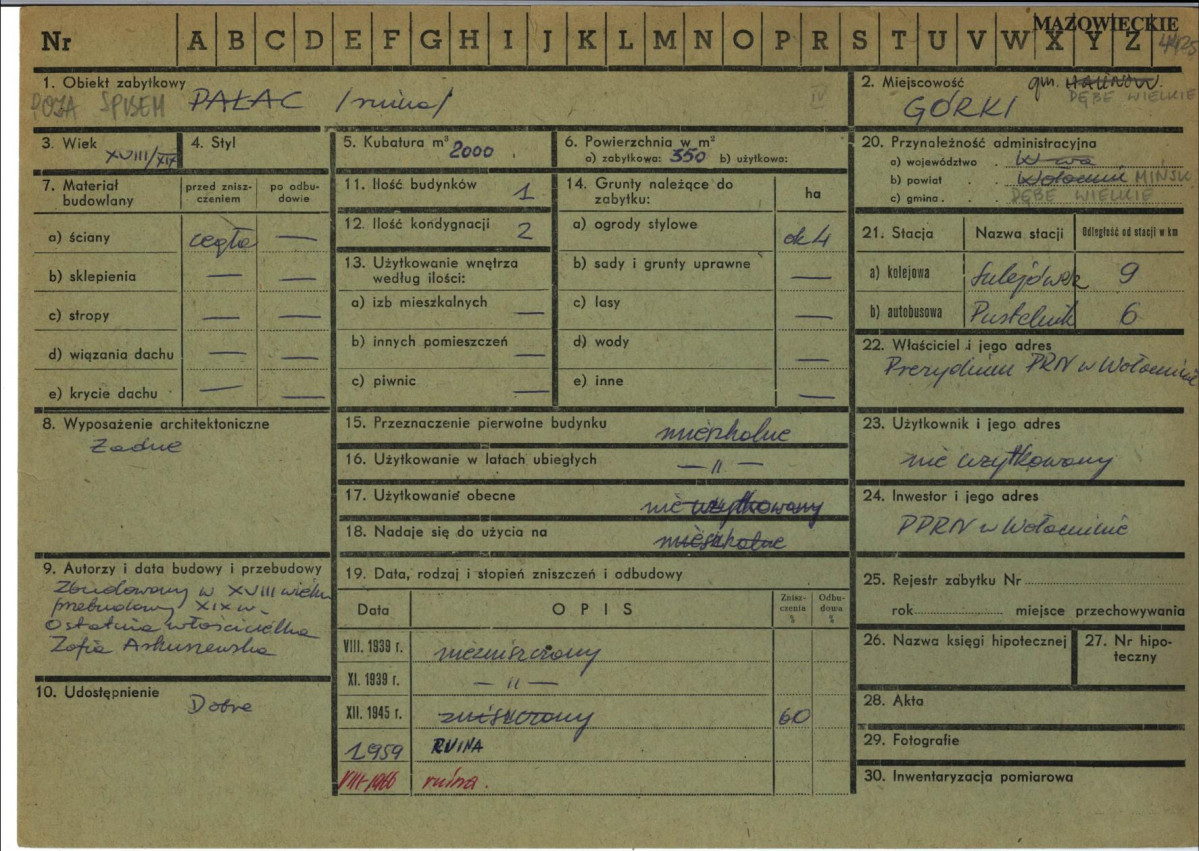 MAZOWIECKIE
Nr A B C D E F G H I J K L M N O P R S T U V W X Y Z 4425
1. Obiekt zabytkowy
POZA SPISEM PAŁAC /ruina/ IV
2. Miejscowość gm. HALINÓW
DĘBE WIELKIE
GÓRKI
3. Wiek XVIII/XIX
4. Styl
5. Kubatura m³ 2000
6. Powierzchnia w m²
a) zabytkowa: 350 b) użytkowa:
7. Materiał budowlany
przed zniszczeniem
po odbudowie
a) ściany cegła —
b) sklepienia — —
c) stropy — —
d) wiązania dachu — —
e) krycie dachu —
8. Wyposażenie architektoniczne
Żadne
9. Autorzy i data budowy i przebudowy
Zbudowany w XVIII wieku
przebudowany XIX w.
Ostatnia właścicielka
Zofia Arkuszewska
10. Udostępnienie Dobre
11. Ilość budynków 1
12. Ilość kondygnacji 2
13. Użytkowanie wnętrza
według ilości:
a) izb mieszkalnych —
b) innych pomieszczeń —
c) piwnic —
14. Grunty należące do
zabytku:
ha
a) ogrody stylowe ok 4
b) sady i grunty uprawne —
c) lasy —
d) wody —
e) inne —
15. Przeznaczenie pierwotne budynku mieszkalne
16. Użytkowanie w latach ubiegłych — „ —
17. Użytkowanie obecne nie użytkowany
18. Nadaje się do użycia na mieszkalne
19. Data, rodzaj i stopień zniszczeń i odbudowy
Data
OPIS
Zniszczenia %
Odbudowa %
VIII. 1939 r. niezniszczony
XI. 1939 r. — „ —
XII. 1945 r. zniszczony 60
1959 RUINA
VIII-1966 ruina.
20. Przynależność administracyjna
a) województwo . W-wa
b) powiat . . Wołomin MIŃSK
c) gmina . . DĘBE WIELKIE
21. Stacja
Nazwa stacji
Odległość od stacji w km
a) kolejowa Sulejówek 9
b) autobusowa Pustelnik 6
22. Właściciel i jego adres
Prezydium PRN w Wołominie
23. Użytkownik i jego adres
nie użytkowany
24. Inwestor i jego adres
PPRN w Wołominie
25. Rejestr zabytku Nr
rok miejsce przechowywania
26. Nazwa księgi hipotecznej
27. Nr hipoteczny
28. Akta
29. Fotografie
30. Inwentaryzacja pomiarowa